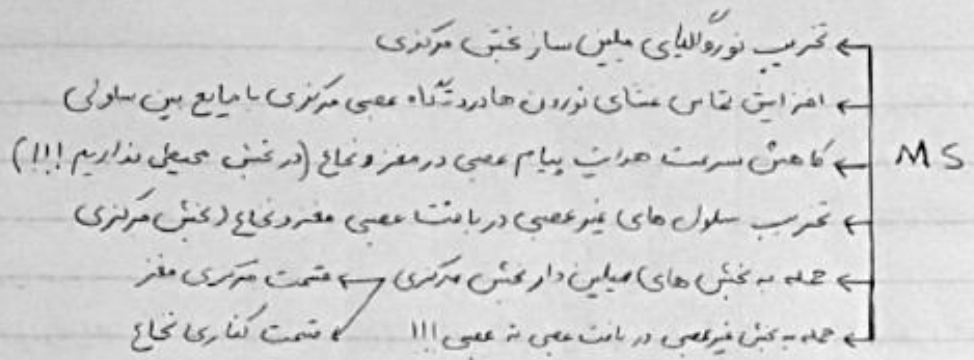 تخریب نوروگلیای میلین ساز بخش مرکزی
افزایش تماس غشای نورون ها در دستگاه عصبی مرکزی با مایع بین سلولی
MS کاهش سرعت هدایت پیام عصبی در مغز و نخاع (در بخش محیطی نداریم !!!)
تخریب سلول های غیر عصبی در بافت عصبی مغز و نخاع (بخش مرکزی
حمله به بخش های میلین دار بخش مرکزی قسمت مرکزی مغز
حمله به بخش غیر عصبی در بافت عصبی نه عصبی !!! قسمت کناری نخاع